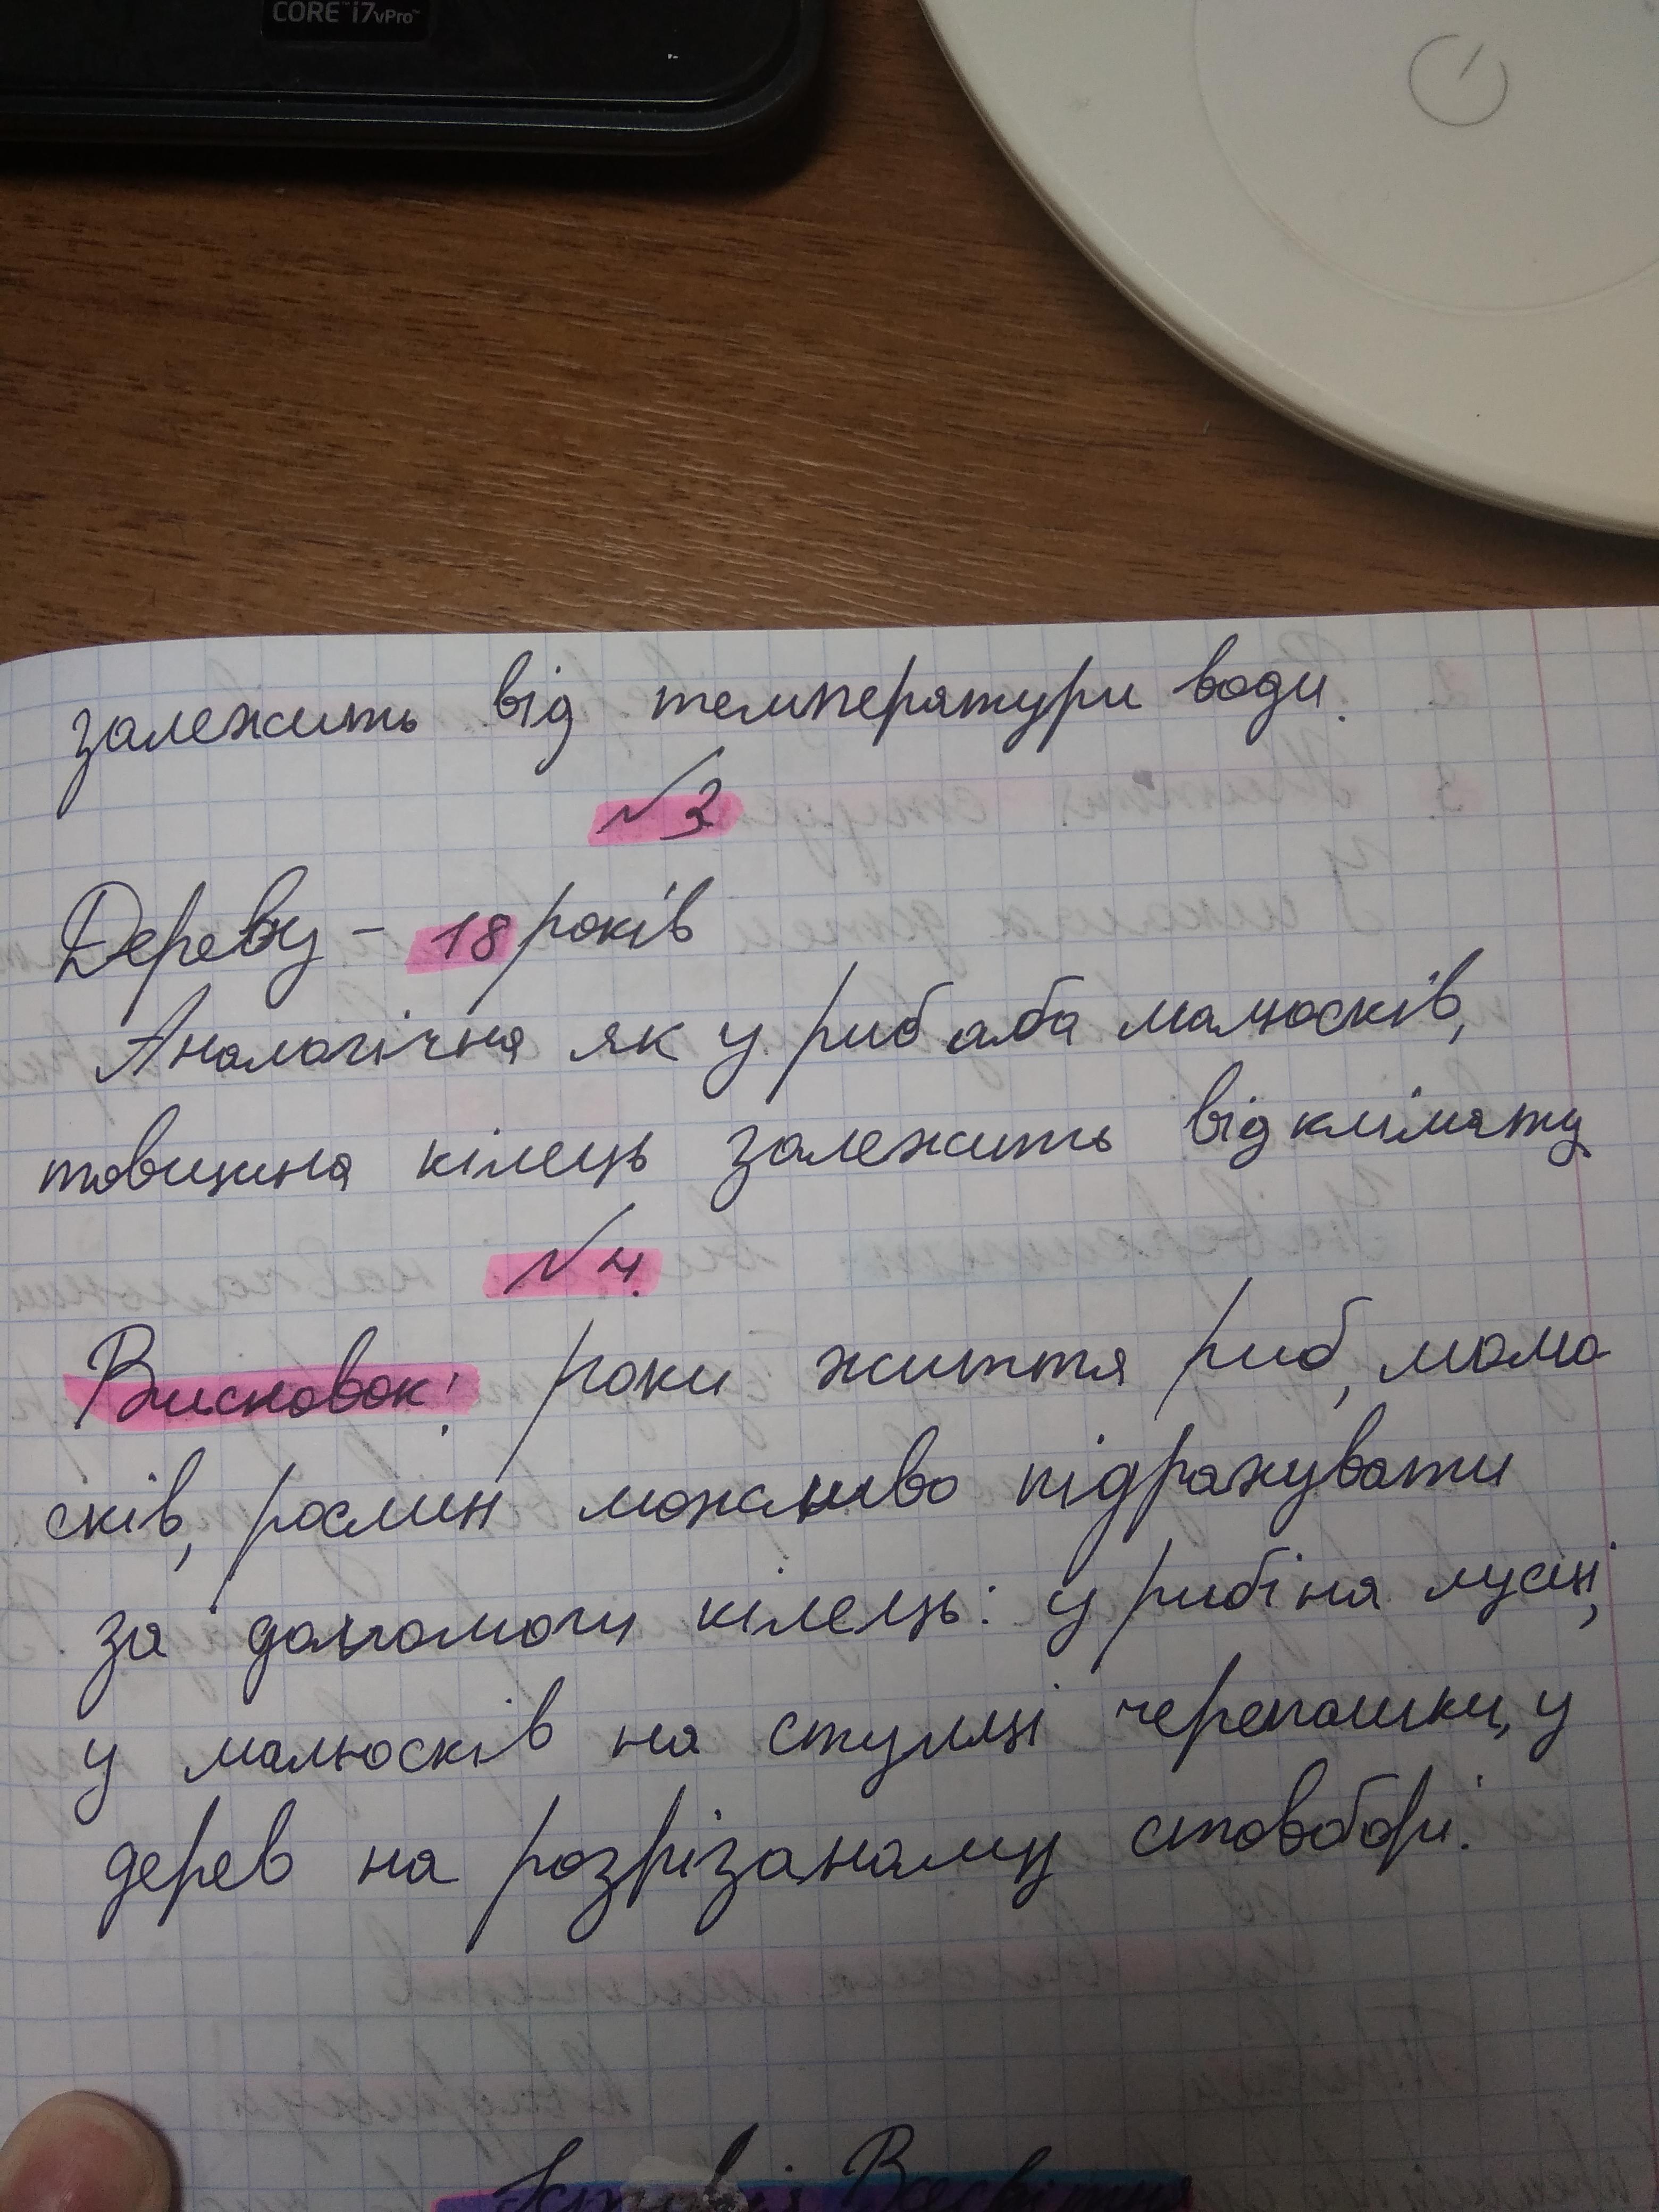 CORE i7 vPro
залежить від температури води.
№3
Дереву - 18 років
Аналогічна як у риб або малюсків,
товщина кілець залежить від клімату
№4.
Висновок: роки життя риб, мома
сків, рослин можливо підрахувати
за допомоги кілець: у рибі на лусці,
у малюсків на стулці черепашки, у
дерев на розрізаному стовобурі.
Історія Всесвітня